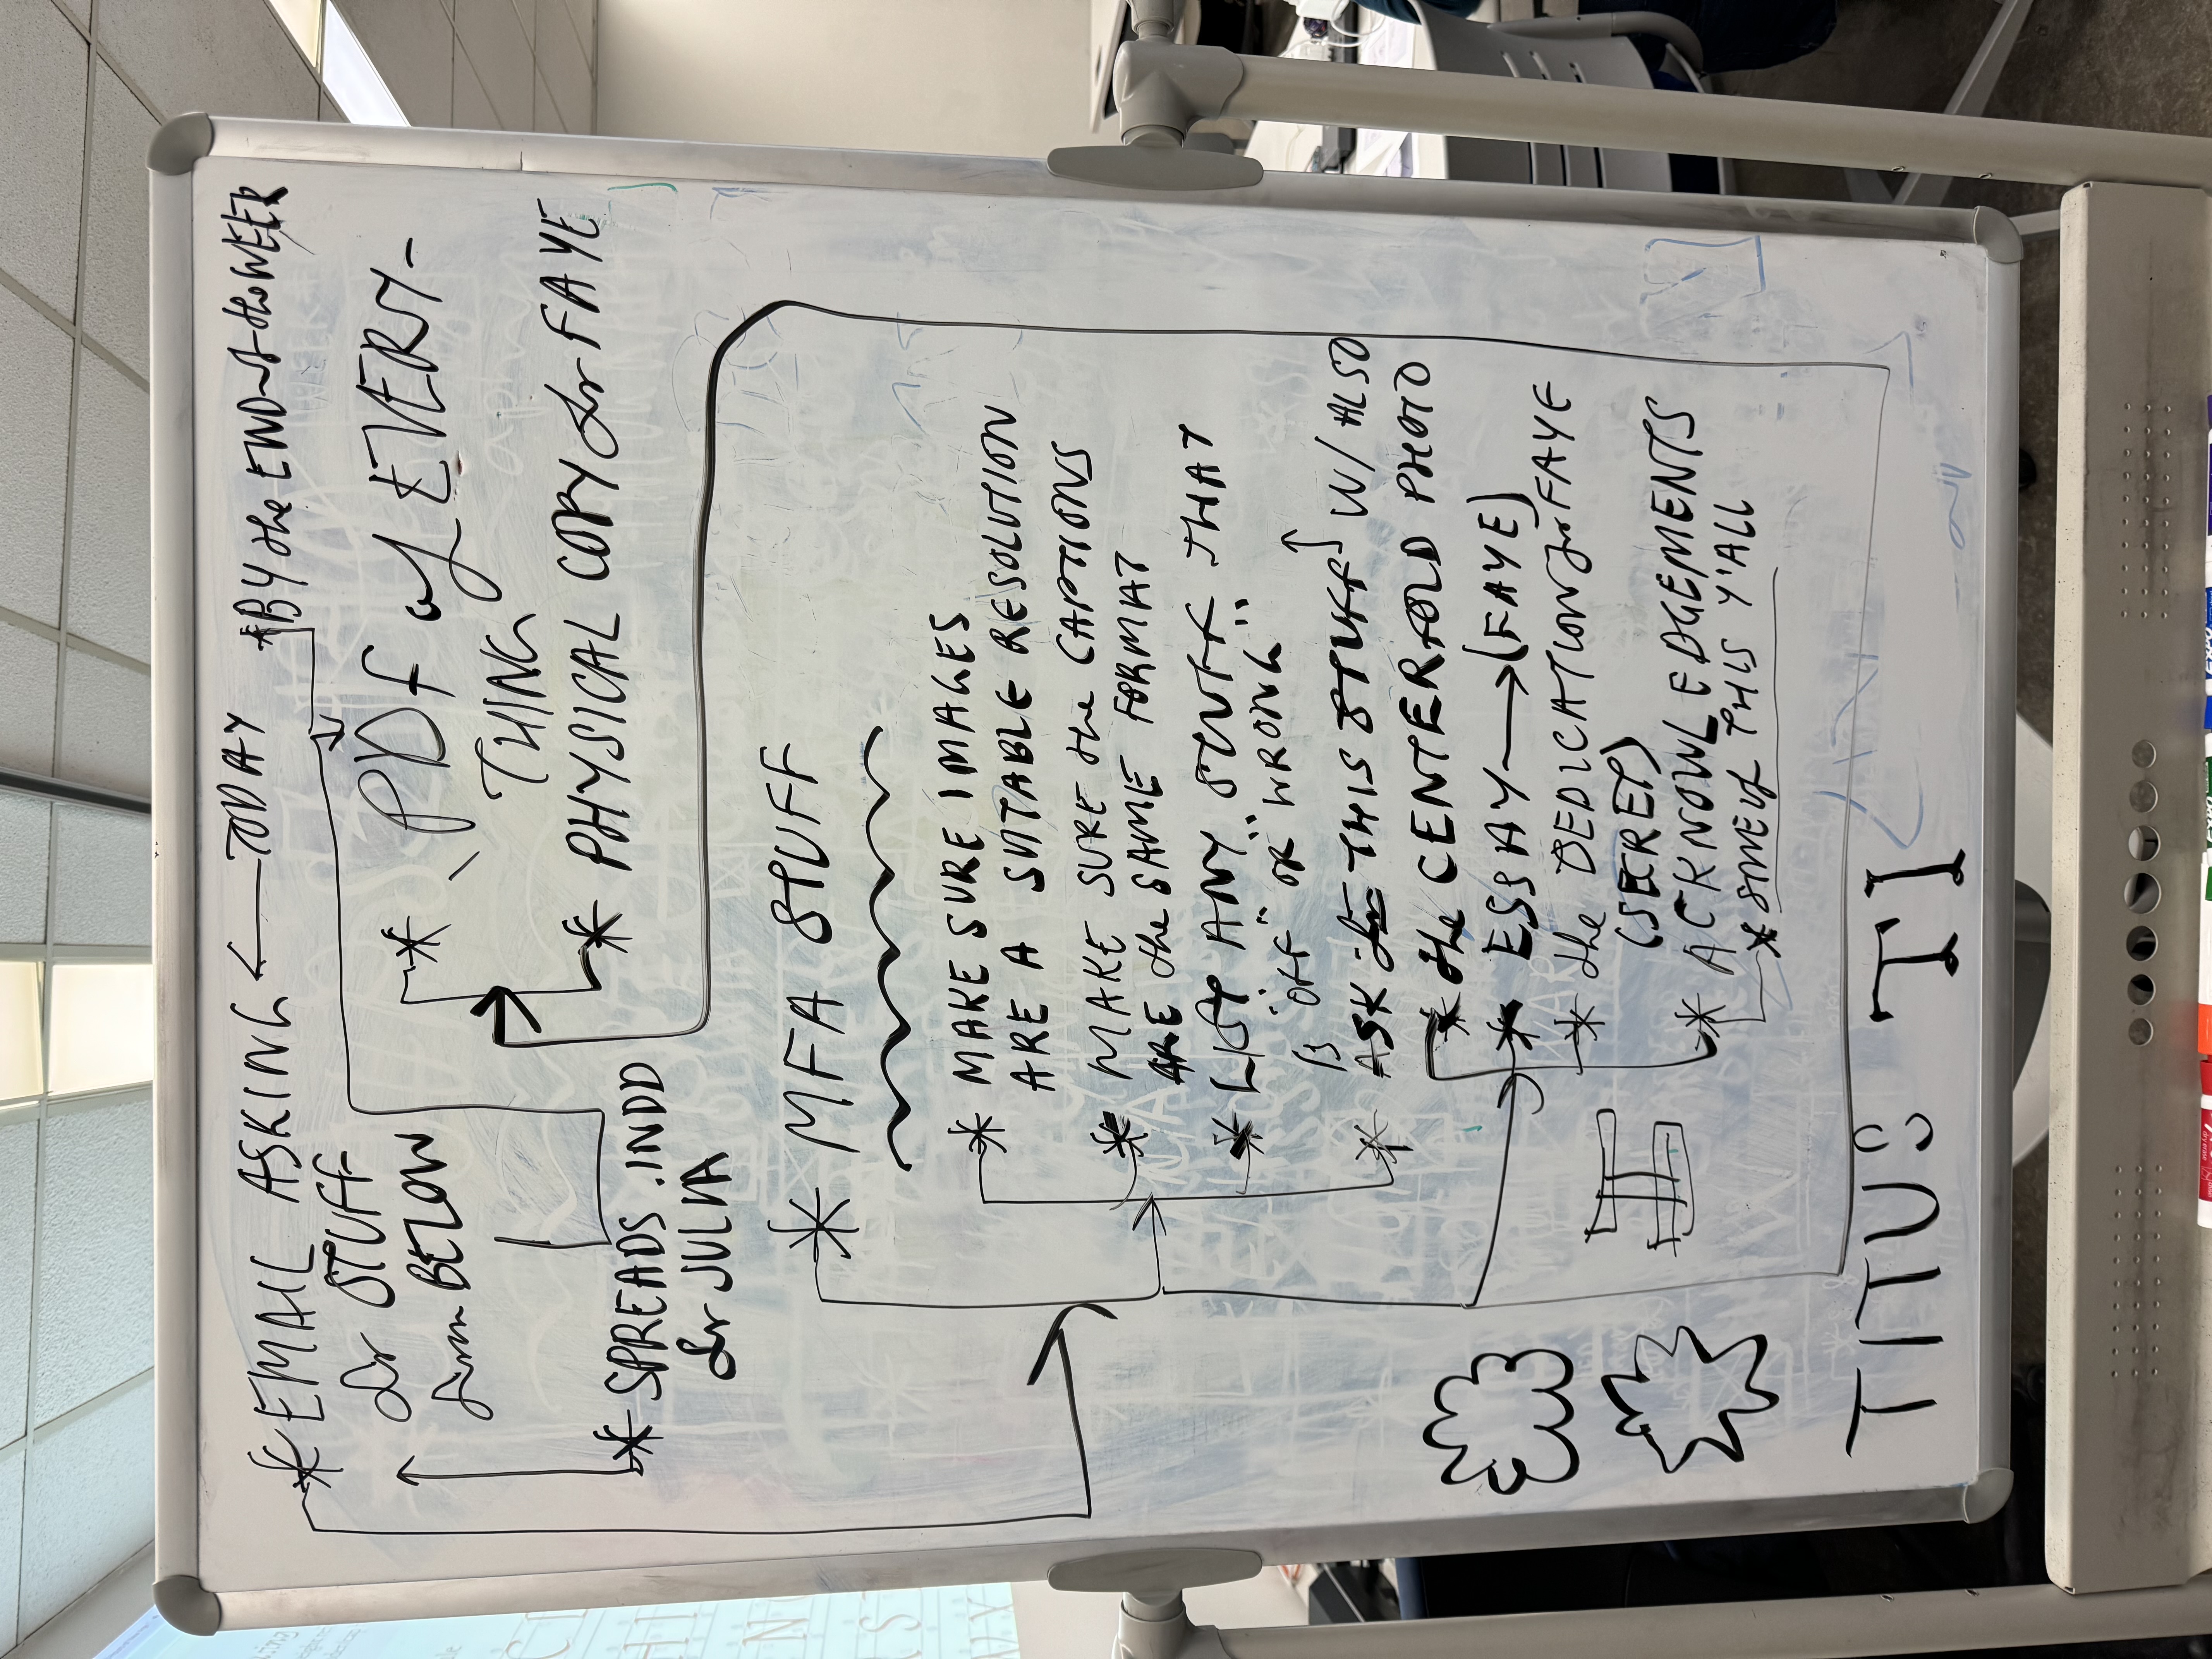 * EMAIL ASKING ← TODAY
for STUFF
from BELOW
* BY the END of the WEEK
* PDF of EVERY-
THING
* PHYSICAL COPY for FAYE
* SPREADS .INDD
for JULIA
* MFA STUFF
* MAKE SURE IMAGES
ARE A SUITABLE RESOLUTION
* MAKE SURE the CAPTIONS
ARE the SAME FORMAT
* LIST ANY STUFF THAT
IS "OFF" OR "WRONG"
* ASK for THIS STUFF W/ ALSO
* the CENTERFOLD PHOTO
* ESSAY → (FAYE)
* the DEDICATION for FAYE
(SECRET)
* ACKNOWLEDGEMENTS
* SOME of THIS Y'ALL
TITUS TI